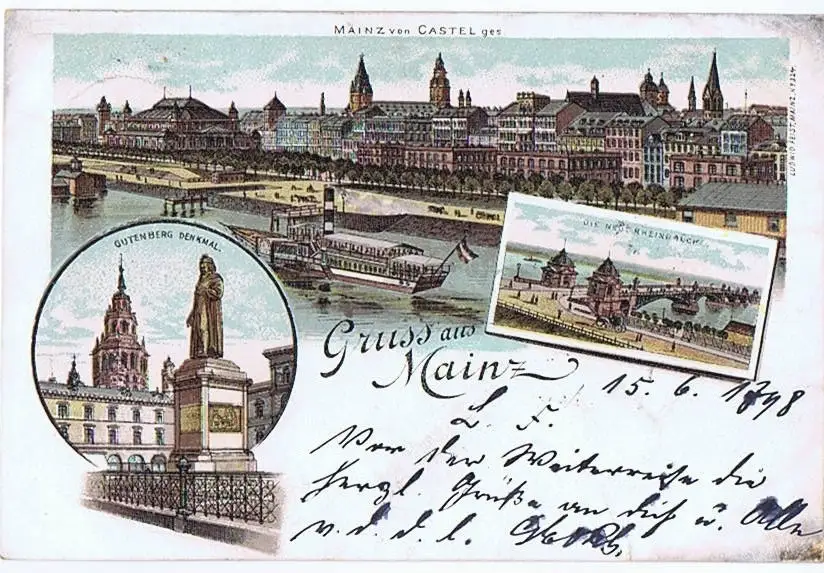 MAINZ von CASTEL ges
LUDWIG FEIST, MAINZ. Nº
GUTENBERG DENKMAL.
DIE NEUE RHEINBRÜCKE
Gruss aus
Mainz
15. 6. 1898
L. F.
Vor der Weiterreise die
herzl. Grüße an dich u. Alle
v. d. d. l.